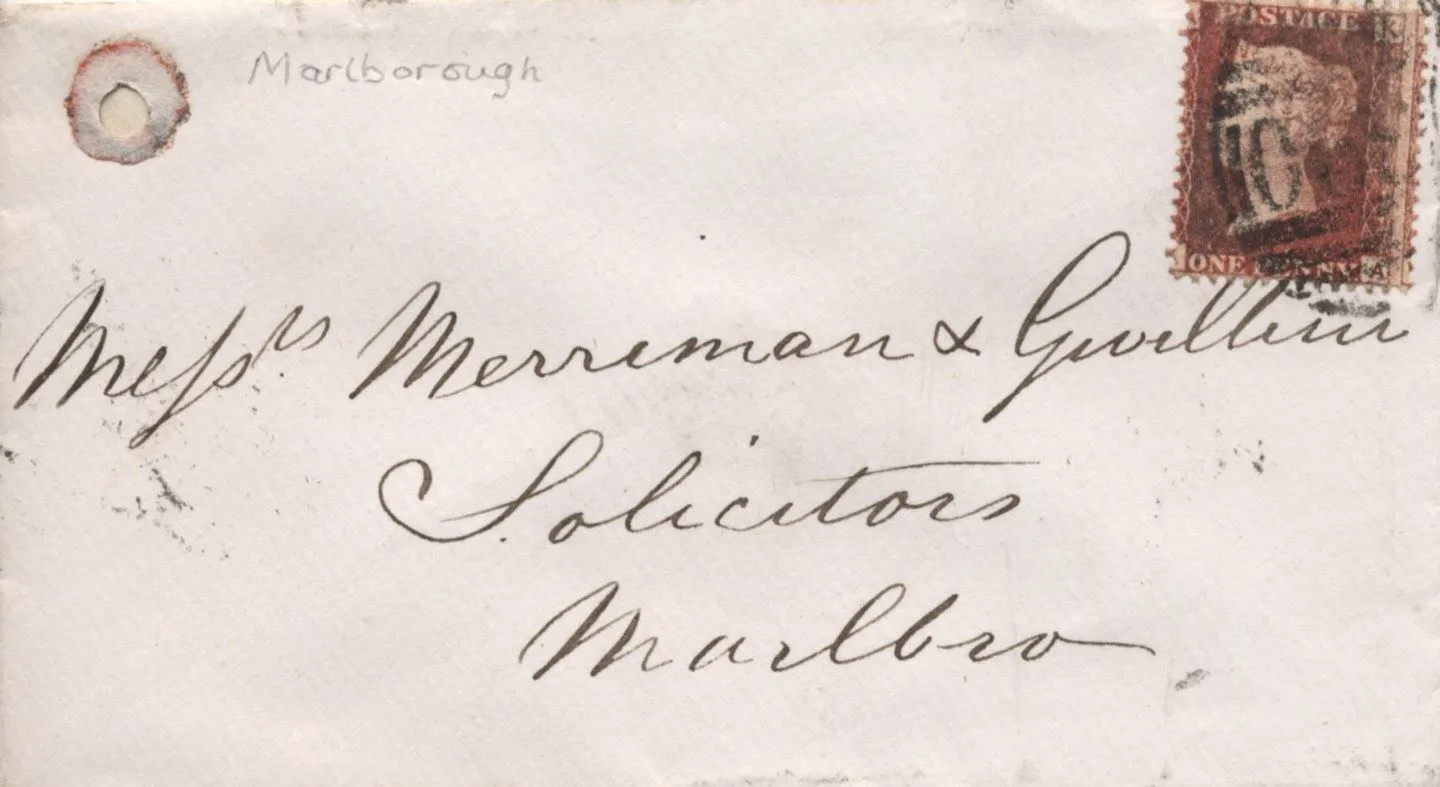 Marlborough
POSTAGE
K
ONE PENNY
A
Messrs Merriman & Gwillim
Solicitors
Marlbro